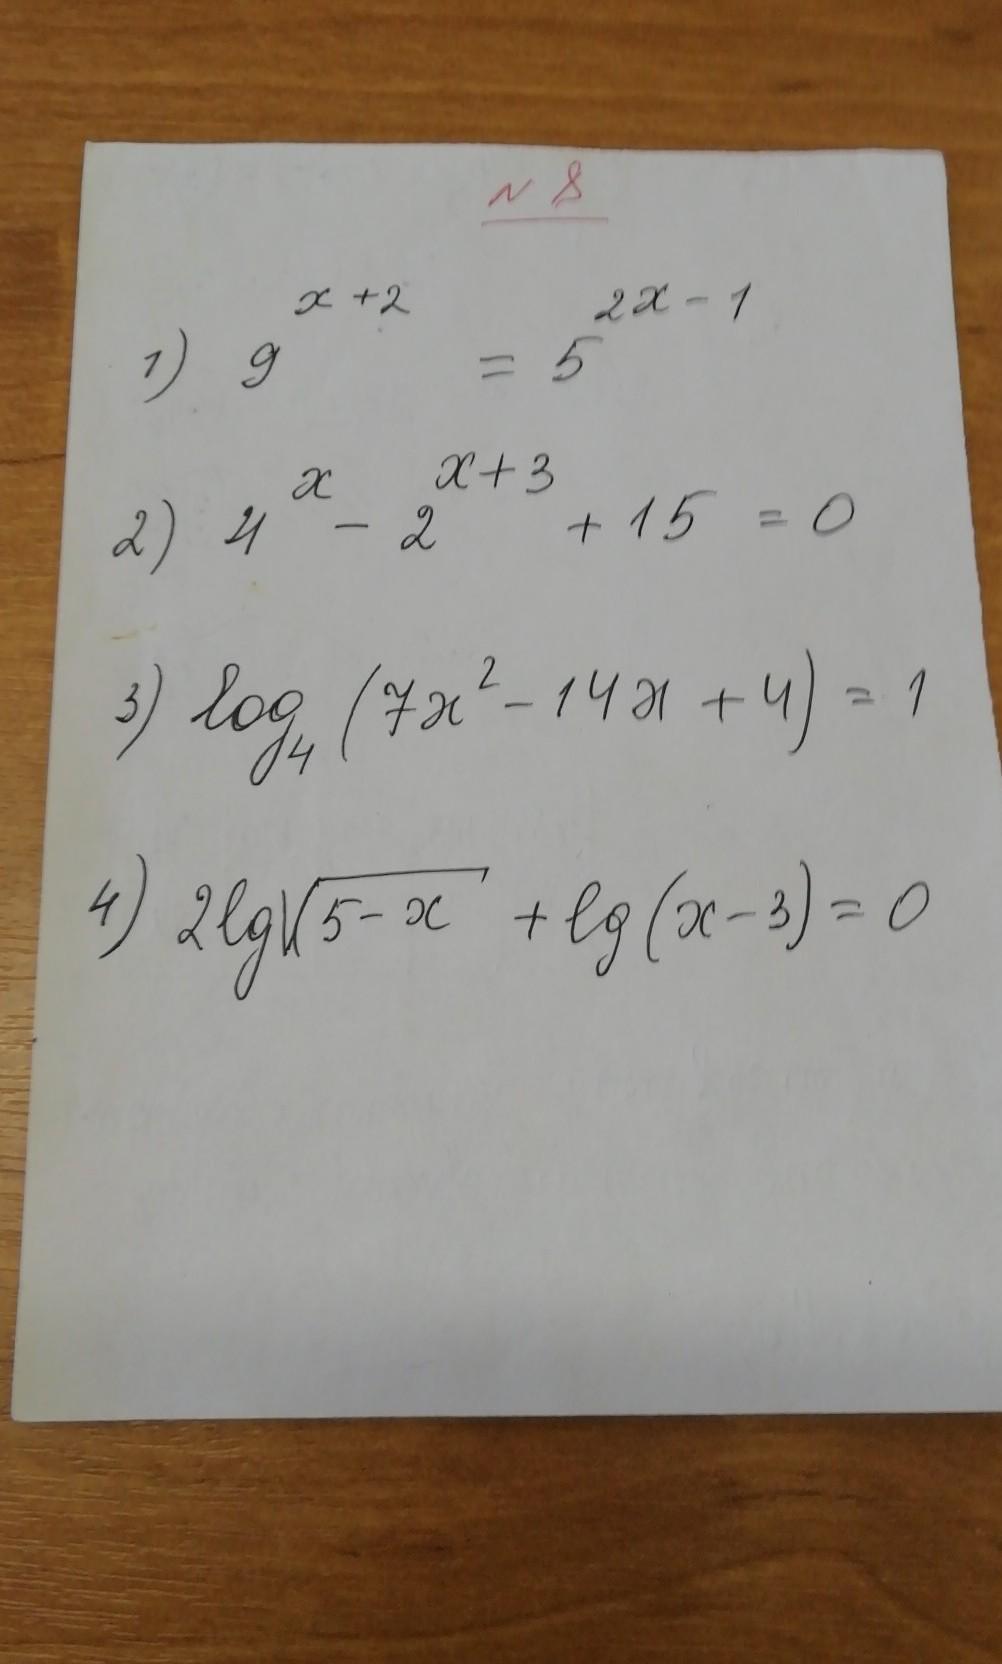 N 8
1) 9^{x+2} = 5^{2x-1}
2) 4^x - 2^{x+3} + 15 = 0
3) log_4 (7x^2 - 14x + 4) = 1
4) 2lg√(5-x) + lg(x-3) = 0